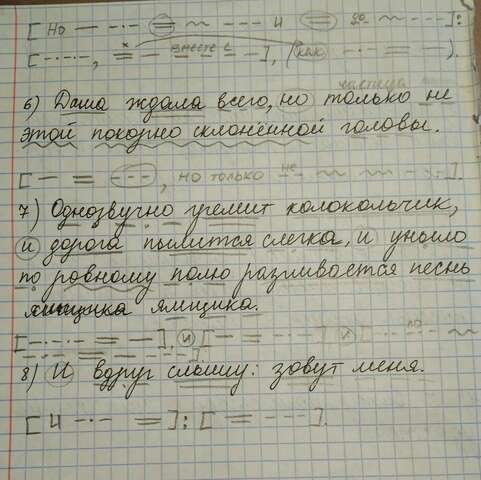 [ но и до ]:
[ , вместе с ], (как ).
частица
6) Дама ждала всего, но только не
этой покорно склонённой головы.
[ , но только не ].
7) Однозвучно гремит колокольчик,
и дорога пылится слегка, и уныло
по ровному полю разливается песнь
ямщика.
[ ], и [ ] и [ по
].
8) И вдруг слышу: зовут меня.
[ И ]: [ ].